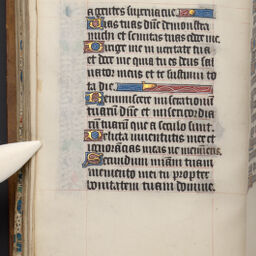 agentes supervacue.
Vias tuas dne demonstra
michi et semitas tuas edoce me.
Dirige me in veritate tua
et doce me quia tu es deus sal
vator meus et te sustinui to
ta die.
Reminiscere miserationum
tuarum dne et misericordia
rum tuarum que a seculo sunt.
Delicta iuventutis mee et
ignorancias meas ne memineris.
Secundum miam tuam
memento mei tu propter
bonitatem tuam domine.